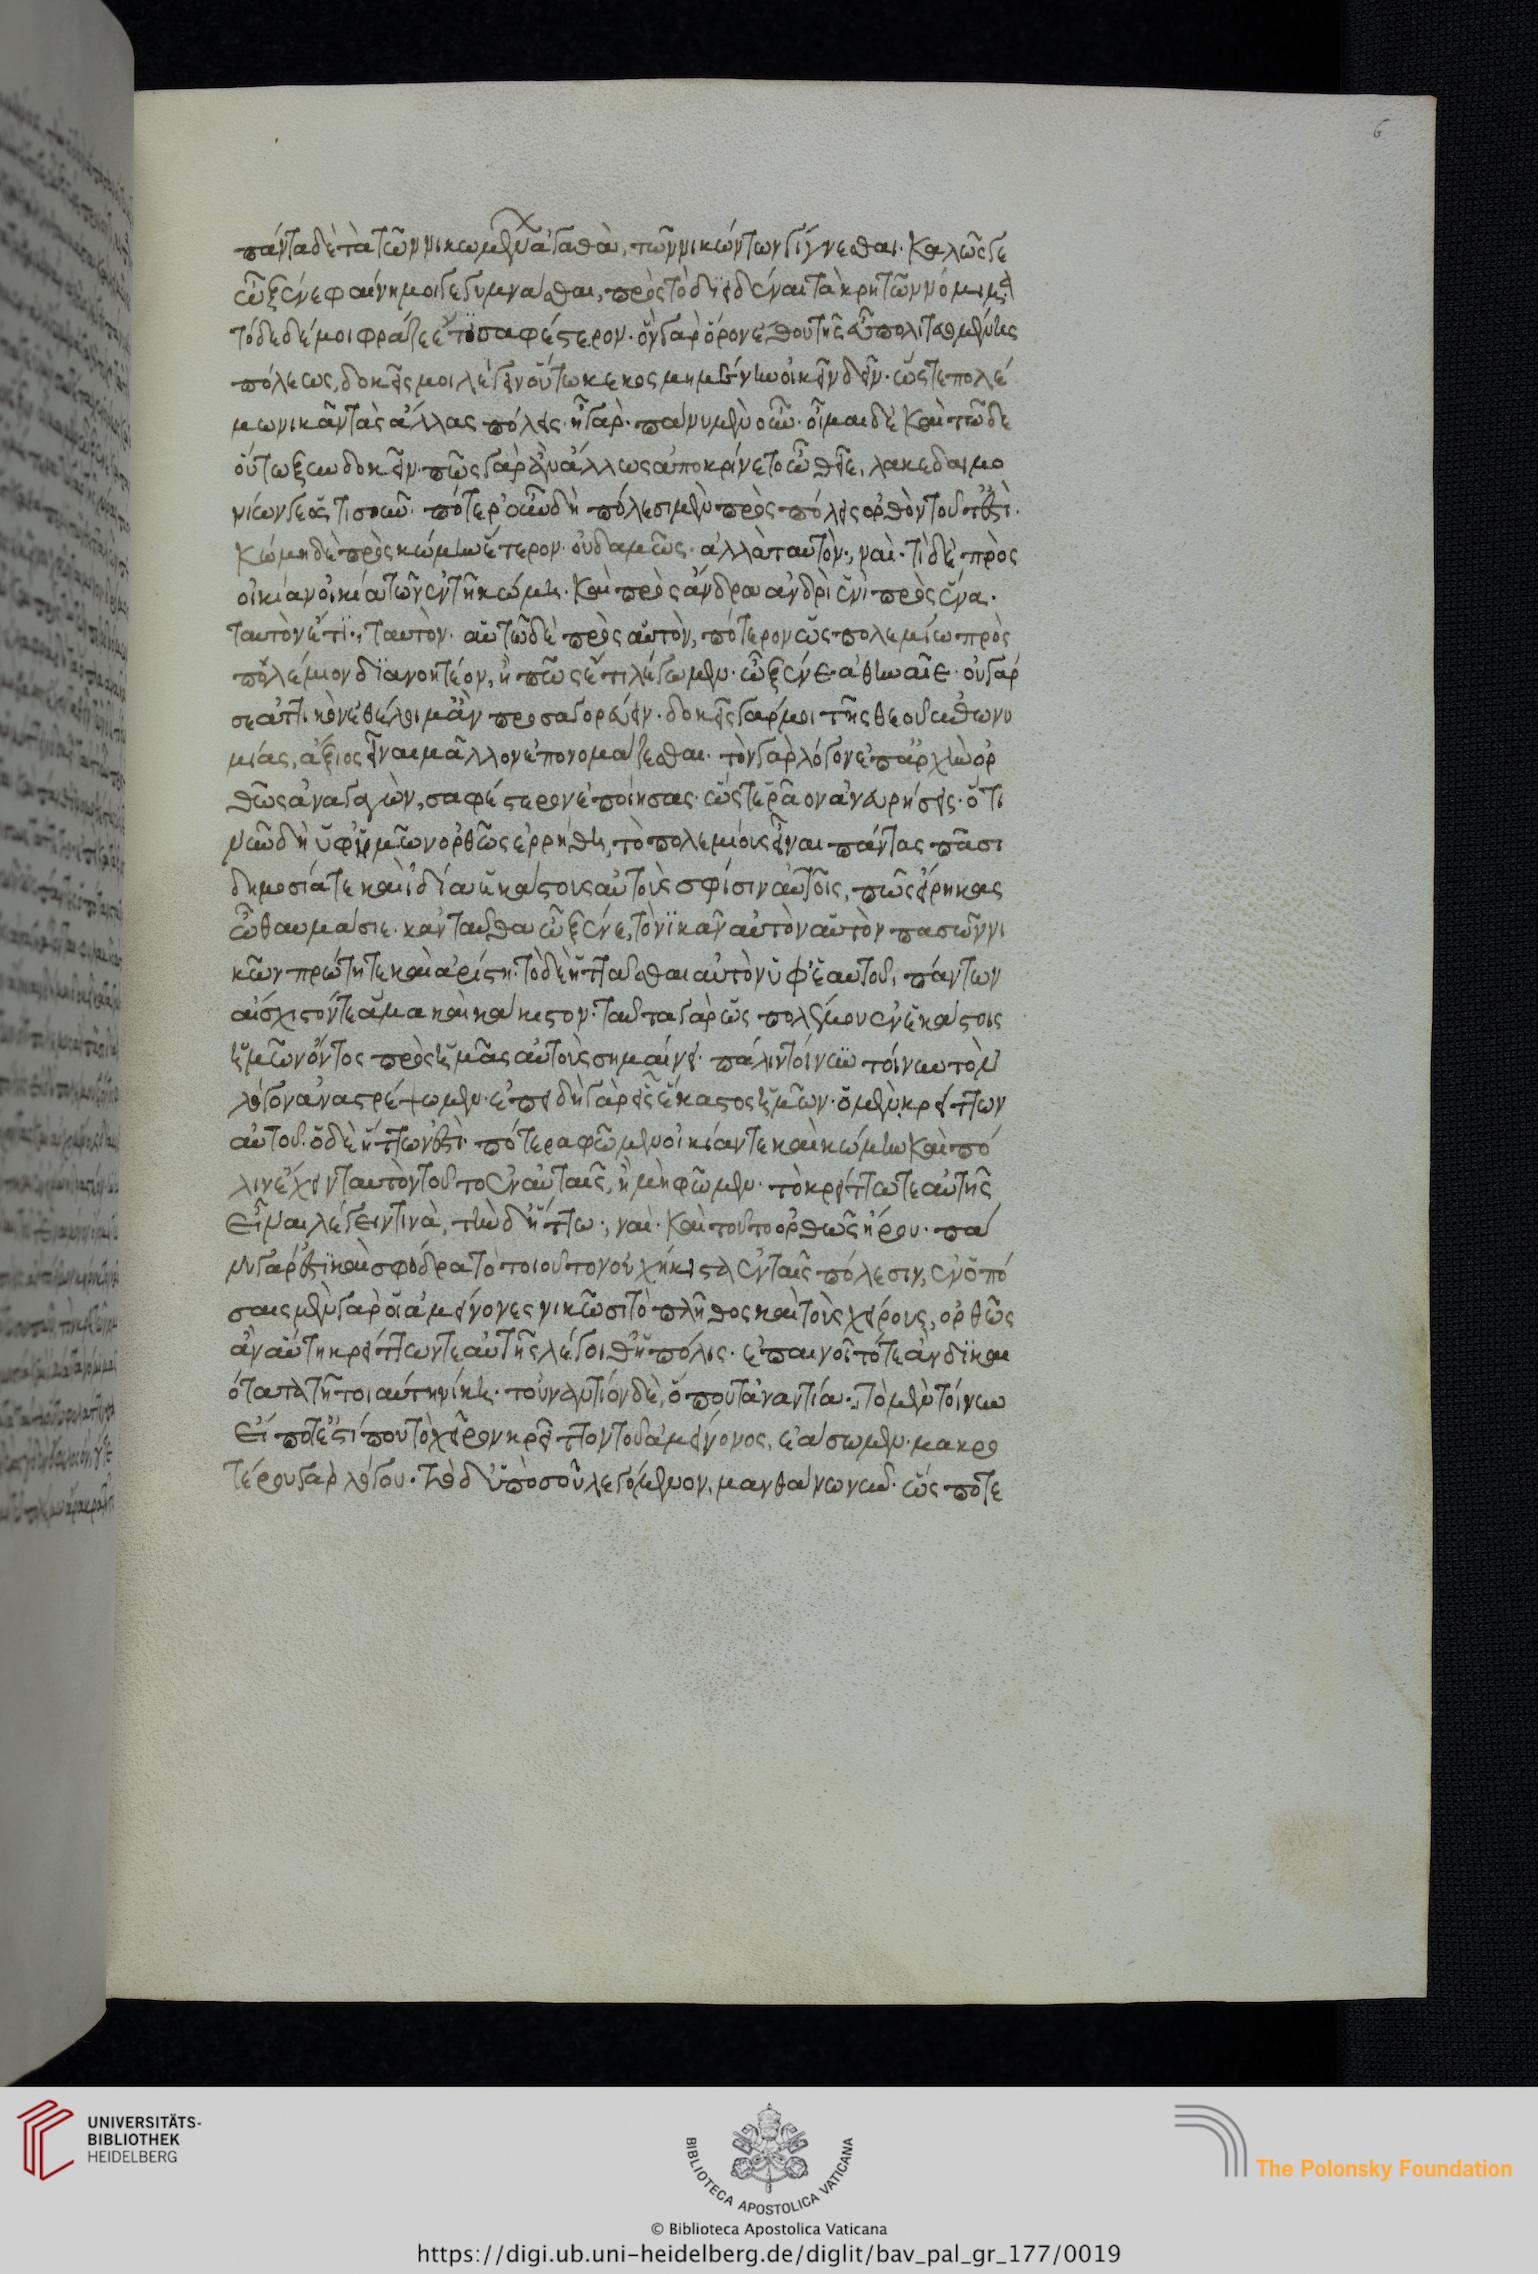 6
πάντα δὲ τὰ τῶν νικωμένων ἀγαθὰ, τῶν νικώντων γίγνεσθαι. καλῶς γε
ὦ ξένε φαίνῃ μοι γεγυμνάσθαι, πρὸς τὸ διειδέναι τὰ κρητῶν νόμιμα
τόδε δέ μοι φράζε ἔτι σαφέστερον. ὃν γὰρ ὅρον ἔθου τῆς εὖ πολιτευομένης
πόλεως, δοκεῖς μοι λέγειν οὕτω κεκοσμημένην οἰκεῖν δεῖν. ὥστε πολέ
μω νικᾶν τὰς ἄλλας πόλεις. ἦ γάρ. πάνυ μὲν οὖν. οἶμαι δὲ καὶ τῷδε
οὕτω ξυνδοκεῖν. πῶς γὰρ ἂν ἄλλως ἀποκρίνετο ὦ θεῖε, λακεδαιμο
νίων γε ὅστισοῦν. πότερ' οὖν δὴ πόλεσι μὲν πρὸς πόλεις ὀρθὸν τοῦτ' ἐστὶ.
κώμῃ δὲ πρὸς κώμην ἕτερον. οὐδαμῶς. ἀλλὰ ταυτὸν., ναὶ. τί δὲ πρὸς
οἰκίαν οἰκία τῶν ἐν τῇ κώμῃ. καὶ πρὸς ἄνδρα ἀνδρὶ ἑνὶ πρὸς ἕνα.
ταυτὸν ἔτι., ταυτὸν. αὑτῷ δὲ πρὸς αὑτὸν, πότερον ὡς πολεμίω πρὸς
πολέμιον διανοητέον, ἢ πῶς ἔτι λέγωμεν. ὦ ξένε ἀθηναῖε. οὐ γάρ
σε ἀττικὸν ἐθέλοιμ' ἂν προσαγορεύειν. δοκεῖς γάρ μοι τῆς θεοῦ ἐπωνυ
μίας, ἄξιος εἶναι μᾶλλον ἐπονομάζεσθαι. τὸν γὰρ λόγον ἐπ' ἀρχὴν ὀρ
θῶς ἀναγαγὼν, σαφέστερον ἐποίησας. ὥστε ῥᾷον ἀνευρήσεις. ὅτι
νῦν δὴ ὑφ' ἡμῶν ὀρθῶς ἐρρήθη, τὸ πολεμίους εἶναι πάντας πᾶσι
δημοσίᾳ τε καὶ ἰδίᾳ ἑκάστους αὐτοὺς σφίσιν αὐτοῖς, πῶς εἴρηκας
ὦ θαυμάσιε. κἀνταῦθα ὦ ξένε, τὸ νικᾶν αὐτὸν αὑτὸν πασῶν νι
κῶν πρώτη τε καὶ ἀρίστη. τὸ δὲ ἡττᾶσθαι αὐτὸν ὑφ' ἑαυτοῦ, πάντων
αἴσχιστόν τε ἅμα καὶ κάκιστον. ταῦτα γὰρ ὡς πολέμου ἐν ἑκάστοις
ἡμῶν ὄντος πρὸς ἡμᾶς αὐτοὺς σημαίνει. πάλιν τοίνυν τοίνυν τὸν
λόγον ἀναστρέψωμεν. ἐπειδὴ γὰρ εἷς ἕκαστος ἡμῶν. ὁ μὲν κρείττων
αὑτοῦ. ὁ δὲ ἥττων ἐστὶ. πότερα φῶμεν οἰκίαν τε καὶ κώμην καὶ πό
λιν ἔχειν ταυτὸν τοῦτο ἐν αὑταῖς, ἢ μὴ φῶμεν. τὸ κρείττω τε αὑτῆς
εἶναι λέγειν τινὰ, τὴν δ' ἥττω., ναί. καὶ τοῦτο ὀρθῶς ἤρου. πά
νυ γάρ ἐστι καὶ σφόδρα τὸ τοιοῦτον οὐχ ἥκιστα ἐν ταῖς πόλεσιν, ἐν ὁπό
σαις μὲν γὰρ οἱ ἀμείνονες νικῶσι τὸ πλῆθος καὶ τοὺς χείρους, ὀρθῶς
ἂν αὕτη κρείττων τε αὑτῆς λέγοιθ' ἡ πόλις. ἐπαινοῖτό τε ἂν δικαι
ότατα τῇ τοιαύτῃ νίκῃ. τοὐναντίον δὲ, ὅπου τἀναντία., τὸ μὲν τοίνυν
εἴ ποτέ ἐστί που τὸ χεῖρον κρεῖττον τοῦ ἀμείνονος, ἐάσωμεν. μακρο
τέρου γὰρ λόγου. τὸ δ' ὑπὸ σοῦ λεγόμενον, μανθάνω νῦν. ὥς ποτε
UNIVERSITÄTS-
BIBLIOTHEK
HEIDELBERG
BIBLIOTECA APOSTOLICA VATICANA
The Polonsky Foundation
© Biblioteca Apostolica Vaticana
https://digi.ub.uni-heidelberg.de/diglit/bav_pal_gr_177/0019